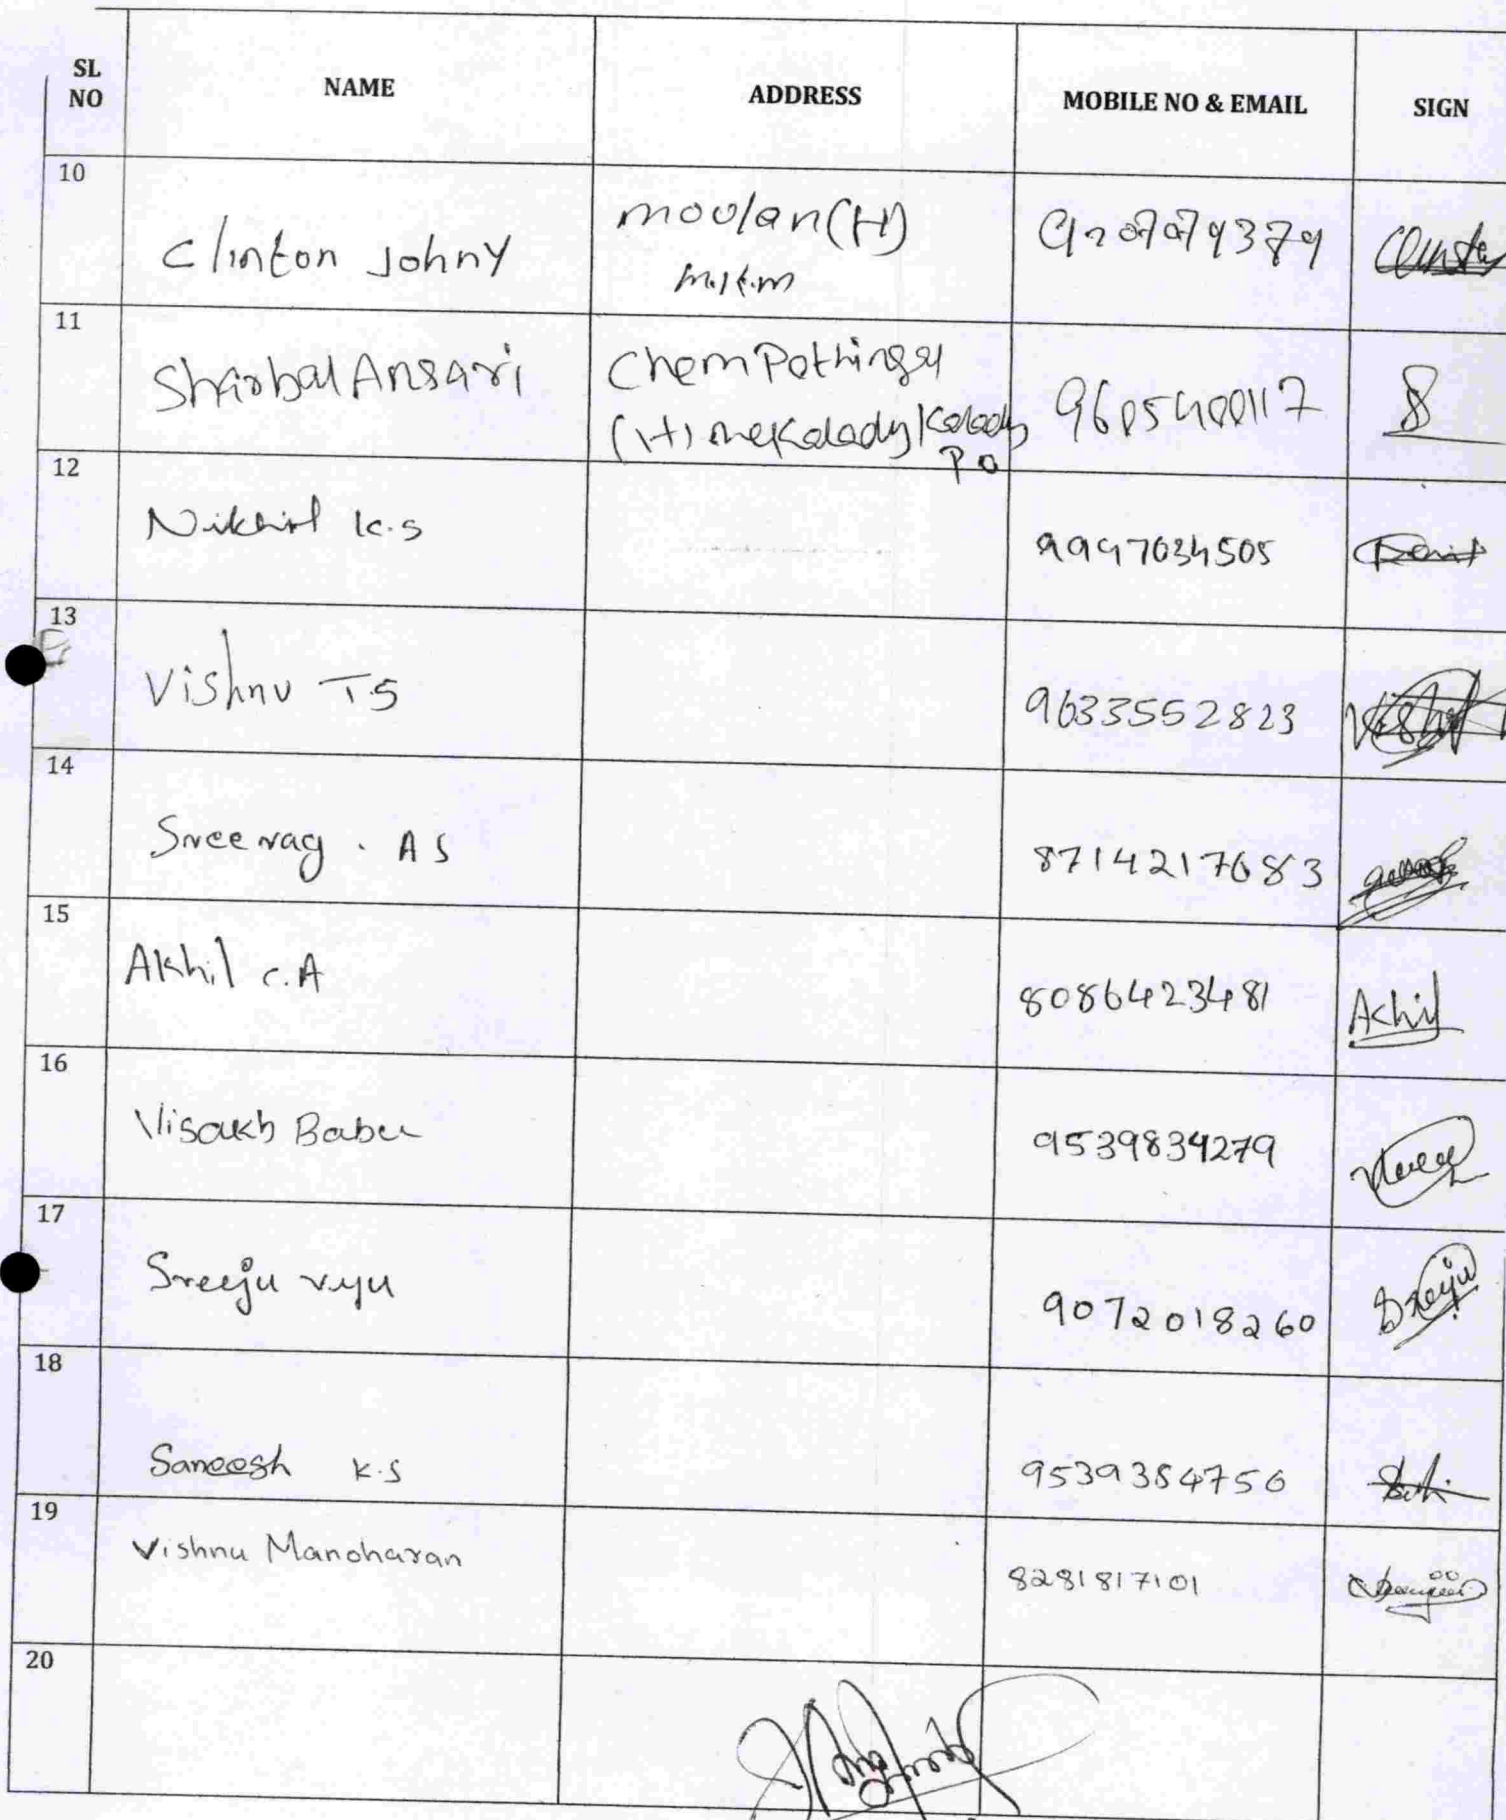 SL NO NAME ADDRESS MOBILE NO & EMAIL SIGN
10
Clinton Johny moolan(H)
11
Sharbal Ansari
(H) Kalady
PO 9605400117
12
Nikhil K.S 9947034505
13
Vishnu T.S 9633552823
14
Sreerag . A S 8714217683
15
Akhil C.A 8086423481 Achil
16
Visakh Babu 9539834279
17
Sreeju 9072018260 Sreeju
18
Saneesh K.S 9539384756
19
Vishnu Manoharan 8281817101
20